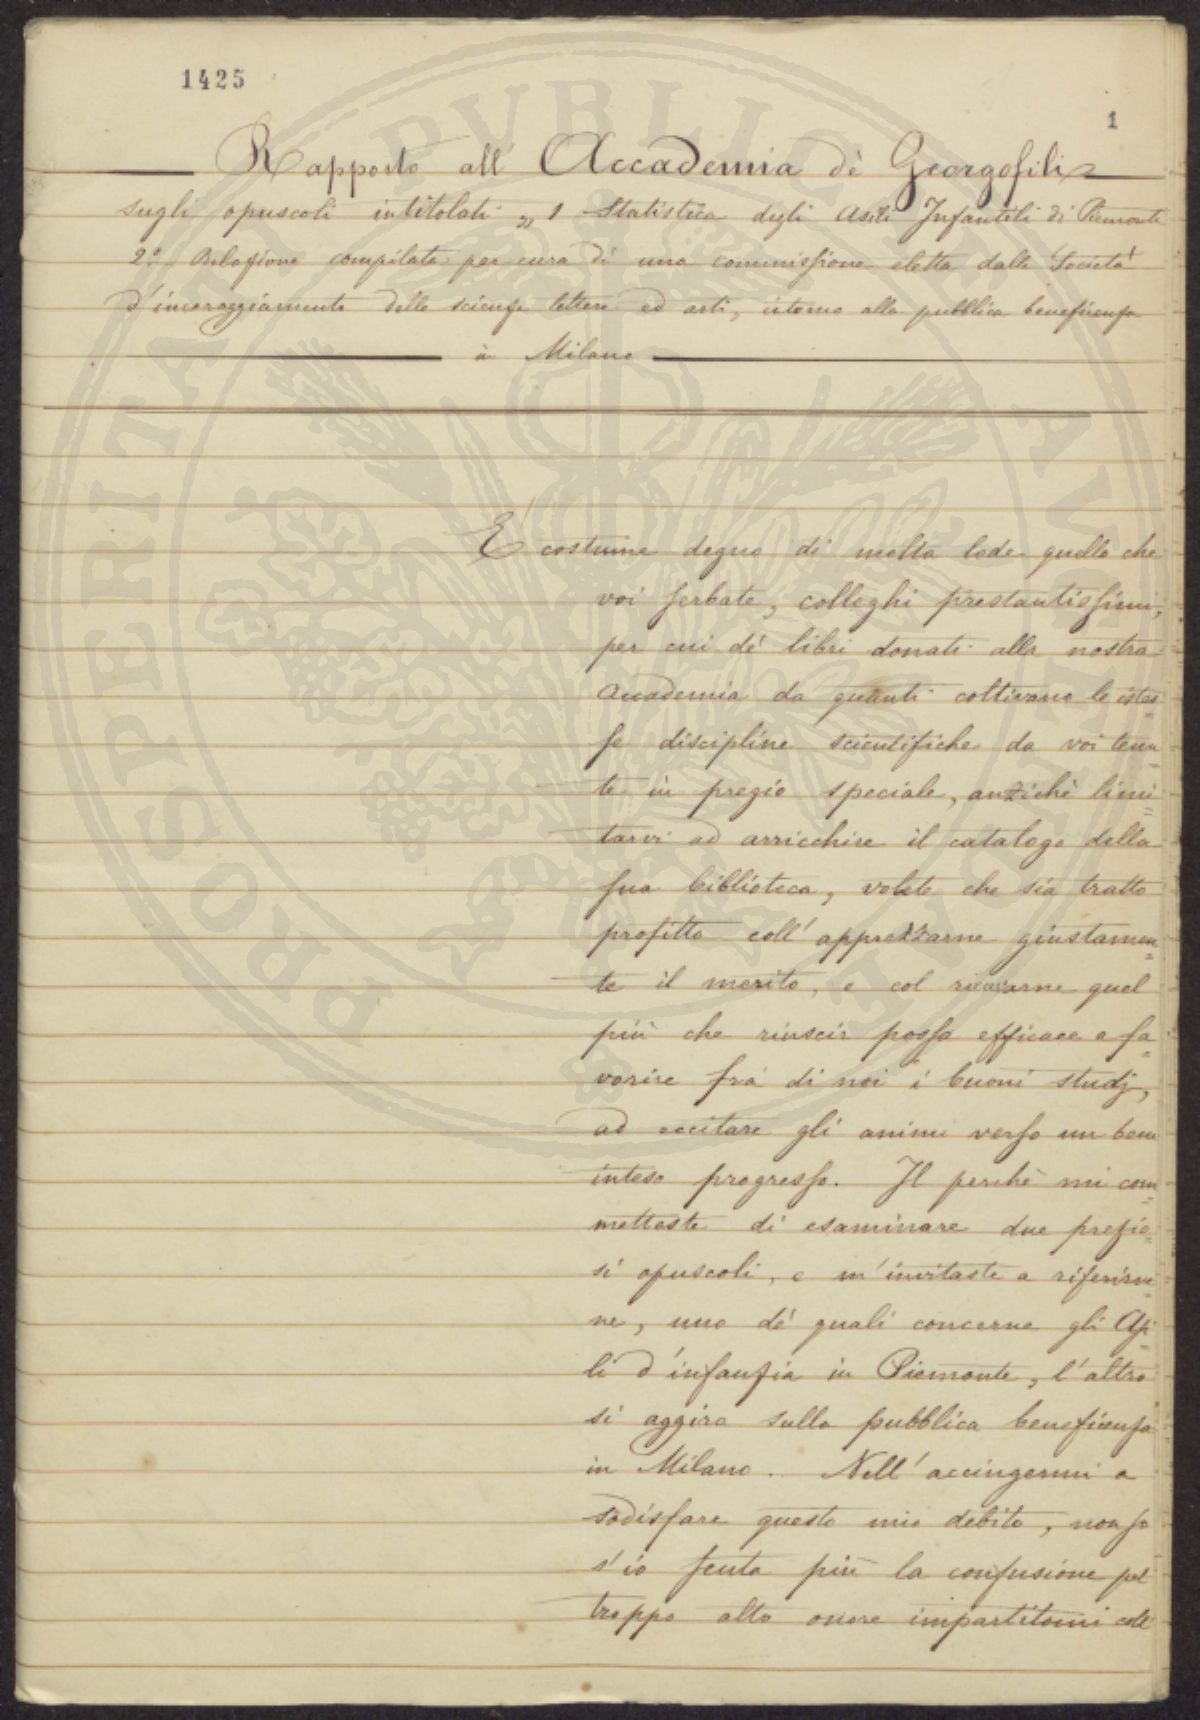 1425
1
Rapporto all Accademia de' Georgofili
sugli opuscoli intitolati „ 1 Statistica degli Asili Infantili di Piemonte
2.° Relazione compilata per cura di una commissione eletta dalla Società
d'incoraggiamento delle scienze lettere ed arti, intorno alla pubblica beneficenza
a Milano
E' costume degno di molta lode quello che
voi serbate, colleghi prestantissimi,
per cui de' libri donati alla nostra
Accademia da quanti coltivano le istes=
se discipline scientifiche da voi tenu=
te in pregio speciale, anzichè limi=
tarvi ad arricchire il catalogo della
sua biblioteca, volete che sia tratto
profitto coll'apprezzarne giustamen=
te il merito, e col ricavarne quel
più che riuscir possa efficace a fa=
vorire fra di noi i buoni studj,
ad eccitare gli animi verso un bene
inteso progresso. Il perchè mi com=
metteste di esaminare due prezio=
si opuscoli, e m'invitaste a riferirve=
ne, uno de' quali concerne gli Asi=
li d'infanzia in Piemonte, l'altro
si aggira sulla pubblica beneficenza
in Milano. Nell'accingermi a
sodisfare questo mio debito, non so
s'io senta più la confusione pel
troppo alto onore impartitomi coll'
PROSPERITATI PVBLICAE AVGENDAE